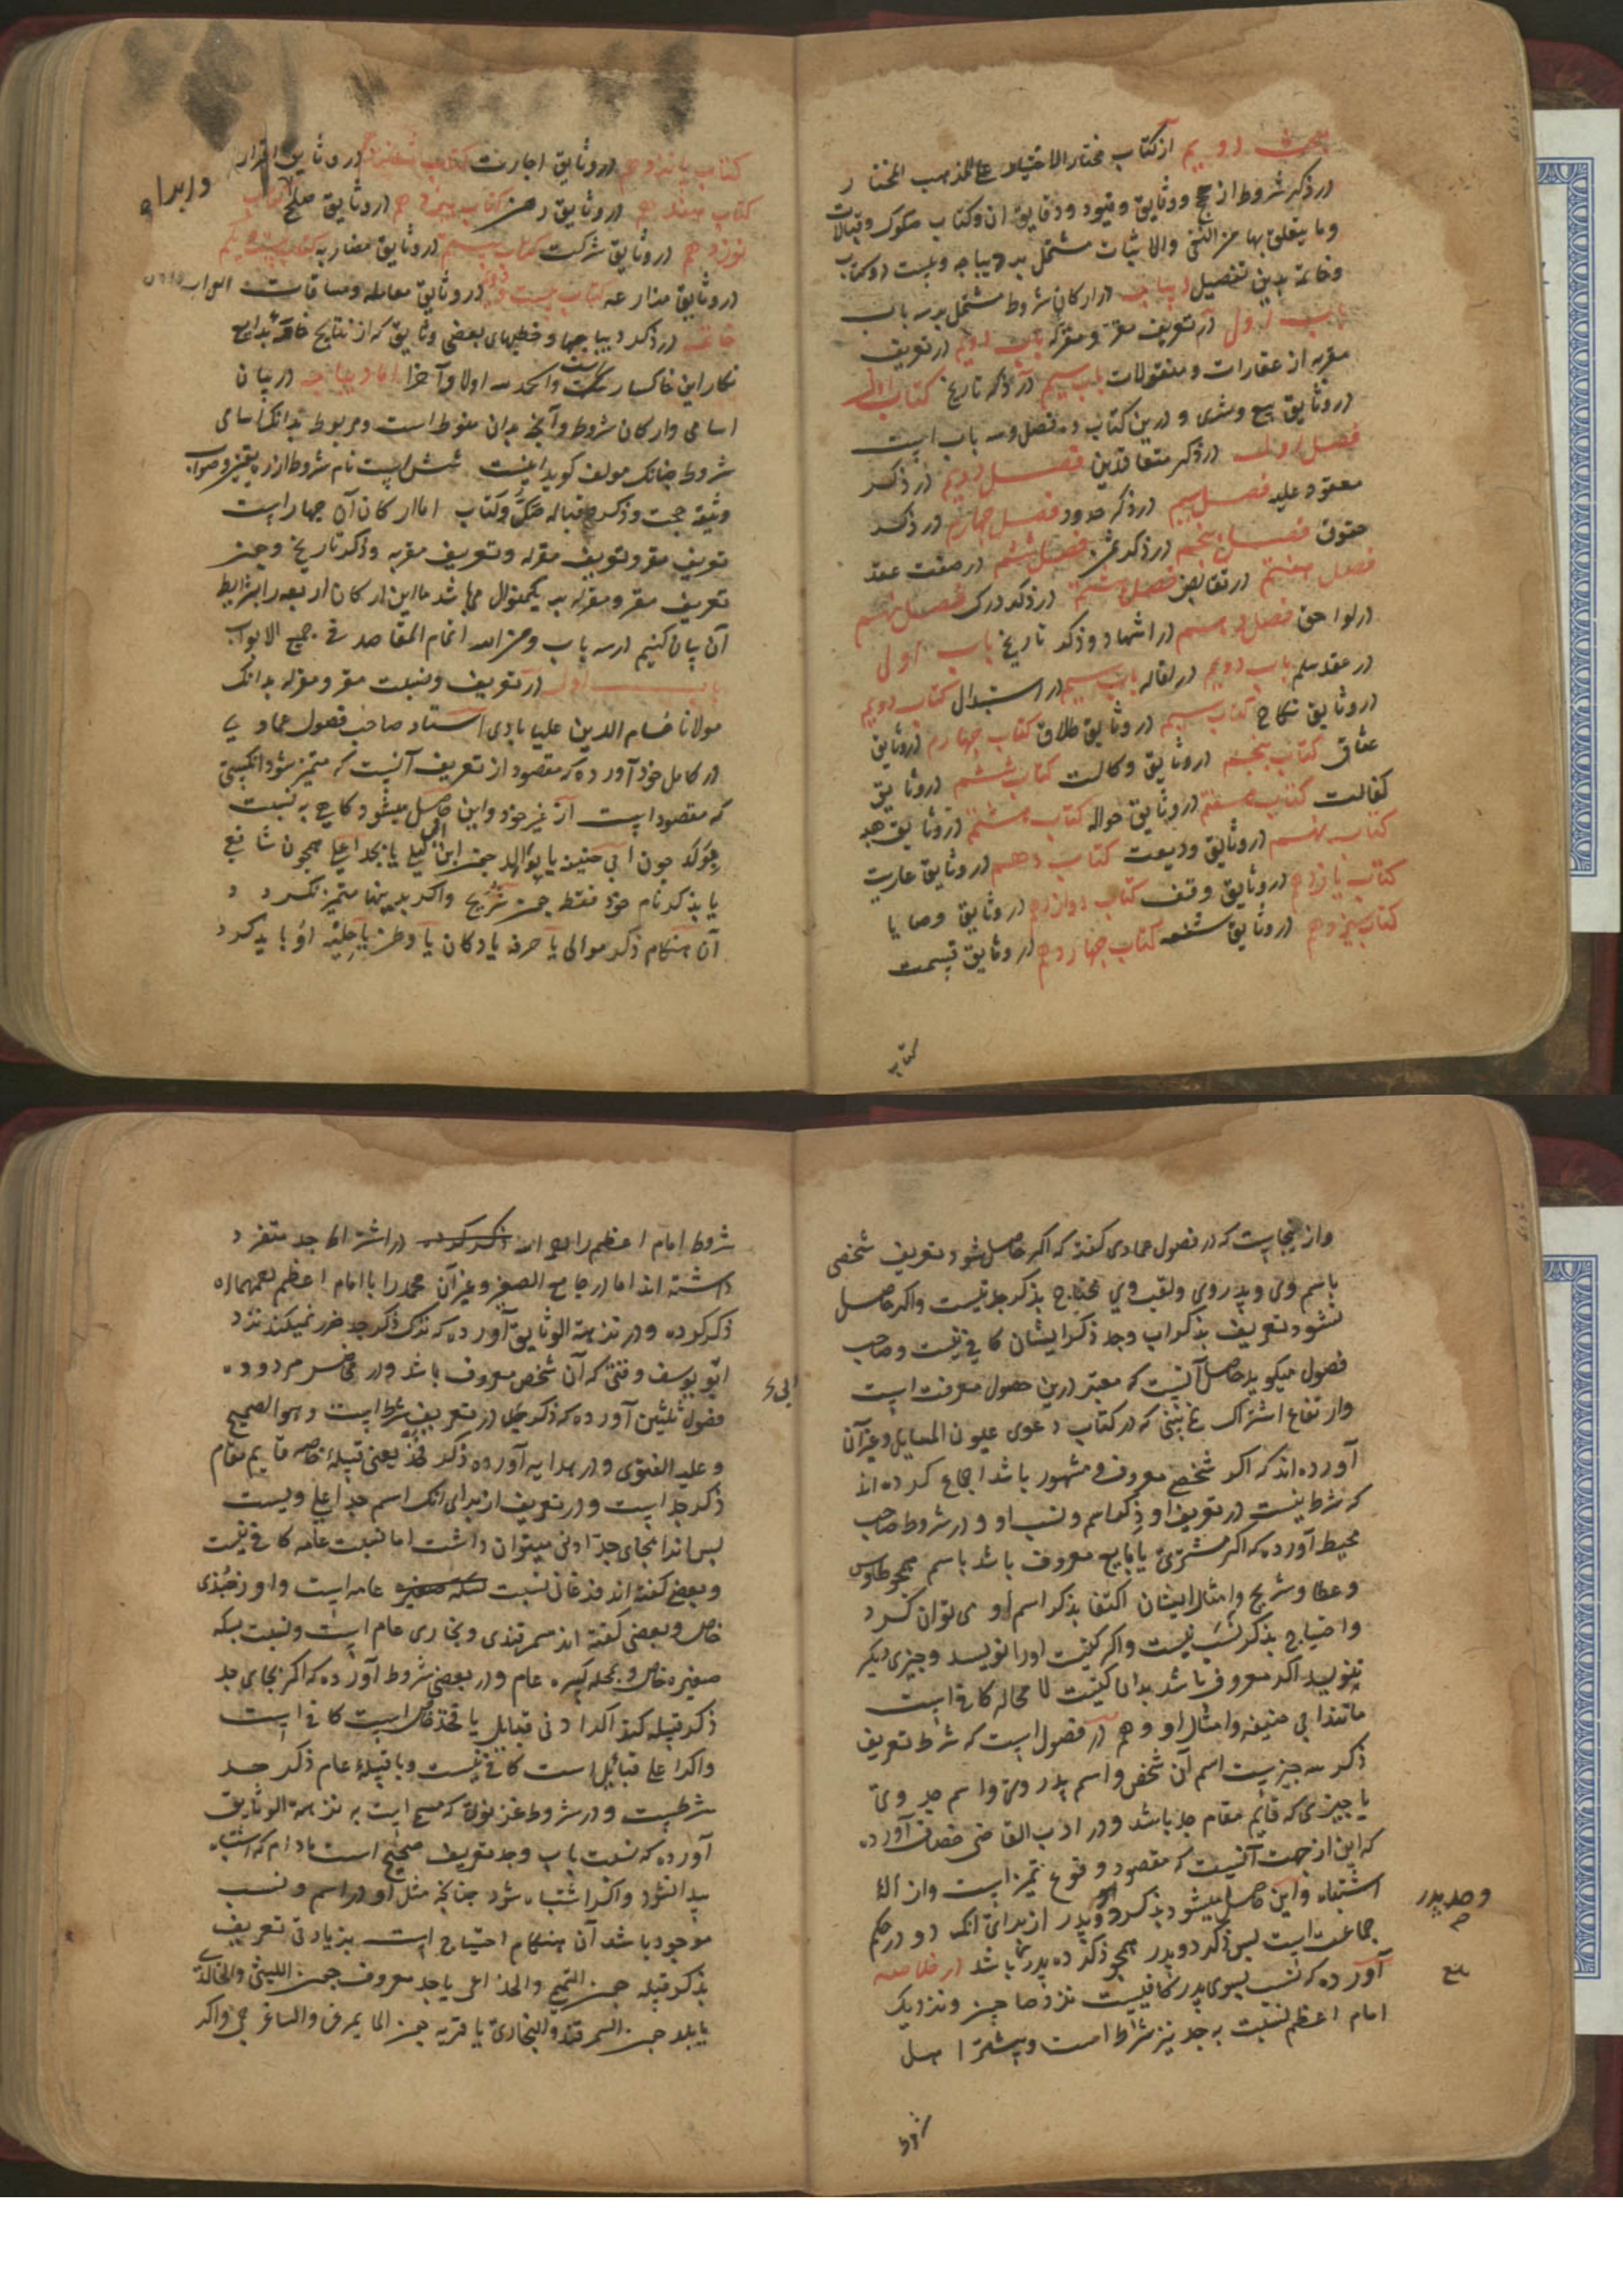 بحث دویم از کتاب مختار الاختیار علی المذهب المختار
در ذکر شروط از حجج و وثایق و قیود و دقایق آن و کتاب صکوک و قبالات
و ما یتعلق بها من النفی والاثبات مشتمل بر دیباجه و بیست دو کتاب
و خاتمه بدین تفصیل دیباجه در ارکان شروط مشتمل بر سه باب
باب اول در تعریف مقر و مقرله باب دویم در تعریف
مقربه از عقارات و منقولات باب سیم در ذکر تاریخ کتاب اول
در وثایق بیع و شری و درین کتاب ده فصل و سه باب است
فصل اول در ذکر متعاقدین فصل دویم در ذکر
معقود علیه فصل سیم در ذکر حدود فصل چهارم در ذکر
حقوق فصل پنجم در ذکر ثمن فصل ششم در صفت عقد
فصل هفتم در تقابض فصل هشتم در ذکر درک فصل نهم
در لواحق فصل دهم در اشهاد و ذکر تاریخ باب اول
در عقد سلم باب دویم در اقاله باب سیم در استبدال کتاب دویم
در وثایق نکاح کتاب سیم در وثایق طلاق کتاب چهارم در وثایق
عتاق کتاب پنجم در وثایق وکالت کتاب ششم در وثایق
کفالت کتاب هفتم در وثایق حواله کتاب هشتم در وثایق هبه
کتاب نهم در وثایق ودیعت کتاب دهم در وثایق عاریت
کتاب یازدهم در وثایق وقف کتاب دوازدهم در وثایق وصایا
کتاب سیزدهم در وثایق شفعه کتاب چهاردهم در وثایق قسمت
کتاب
کتاب پانزدهم در وثایق اجارت کتاب شانزدهم در وثایق اقرار
کتاب هفدهم در وثایق رهن کتاب هیژدهم در وثایق صلح کتاب
نوزدهم در وثایق شرکت کتاب بیستم در وثایق مضاربه کتاب بیست یکم
در وثایق مزارعه کتاب بیست دویم در وثایق معامله و مساقات
خاتمه در ذکر دیباجها و خطبهای بعضی وثایق که از نتایج خامه بدایع
نکار این خاکسارست والحمد لله اولا وآخرا اما دیباجه در بیان
اسامی و ارکان شروط و آنچه بدان منوط است و مربوط بدانکه اسامی
شروط چنانک مولف کوید اینست شش است نام شروط از ره یقین و صواب
وثیقه حجت و ذکر قباله صک و کتاب اما ارکان آن چهار است
تعریف مقر و تعریف مقرله و تعریف مقربه و ذکر تاریخ و چون
تعریف مقر و مقرله بر یک منوال می باشد ما این ارکان اربعه را بشرایط
آن بیان کنیم در سه باب و من الله اتمام المقاصد فی جمیع الابواب
باب اول در تعریف و نسبت مقر و مقرله بدانک
مولانا حسام الدین علیابادی استاد صاحب فصول عمادی
در کامل خود آورده که مقصود از تعریف آنست که متمیز شود آنکسی
که مقصود است از غیر خود و این حاصل میشود کاهی به نسبت
یا بذکر نام خود فقط چون شریح و اکر بدینها متمیز نکردد
آن هنکام ذکر موالی یا حرفه یا دکان یا وطن یا حلیه او باید کرد
و از ینجاست که در فصول عمادی کفته که اکر حاصل شود تعریف شخصی
باسم وی و پدر وی و لقب وی محتاج بذکر جد نیست و اکر حاصل
نشود تعریف بذکر اب و جد ذکر ایشان کافی نیست و صاحب
فصول میکوید حاصل آنست که معتبر درین حصول معرفت است
و ارتفاع اشتراک نمی بینی که در کتاب دعوی عیون المسایل و غیر آن
آورده اند که اکر شخصی معروف و مشهور باشد اجماع کرده اند
که شرط نیست در تعریف او ذکر اسم و نسب او و در شروط صاحب
محیط آورده که اکر مشتری یا بایع معروف باشد باسم همچو طاوس
و عطا و شریح و امثال ایشان اکتفا بذکر اسم او می توان کرد
و احتیاج بذکر نسب نیست و اکر کنیت او را نویسد و چیزی دیکر
ننویسد اکر معروف باشد بدان کنیت لا محاله کافی است
مانند ابی حنیفه و امثال او و هم در فصول است که شرط تعریف
ذکر سه چیز است اسم آن شخص و اسم پدر وی و اسم جد وی
یا چیزی که قایم مقام جد باشد و در ادب القاضی خصاف آورده
که این از جهت آنست که مقصود وقوع تمیز است و ازاله
اشتباه و این حاصل میشود بذکر او و پدر از برای آنک دو در حکم
جماعت است پس ذکر دو پدر همچو ذکر ده پدر باشد در خلاصه
آورده که نسب بسوی پدر کافیست نزد صاحبین و نزدیک
امام اعظم نسبت به جد نیز شرط است و بیشتر اهل
وجد پدر
شروط
شروط امام اعظم را در اشتراط جد متفرد
داشته اند اما در جامع الصغیر و غیر آن محمد را با امام اعظم رحمهما الله
ذکر کرده و در نزهة الوثایق آورده که ترک ذکر جد ضرر نمیکند نزد
ابو یوسف وقتی که آن شخص معروف باشد و در محاضر مردوده
فصول ثلثین آورده که ذکر جد در تعریف شرط است و هو الصحیح
و علیه الفتوی و در هدایه آورده ذکر فخذ یعنی قبیله خاصه قایم مقام
ذکر جد است و در تعریف از برای آنک اسم جد اعلی ویست
پس اندا بجای جد ادنی میتوان داشت اما نسبت عامه کافی نیست
و بعضی کفته اند فرغانی نسبت عامه است و اوزجندی
خاص و بعضی کفته اند سمرقندی و بخاری عام است و نسبت بسکه
صغیره خاص و بمحله کبیره عام و در بعضی شروط آورده که اکر بجای جد
ذکر قبیله کند اکر ادنی قبایل یا فخذ خاص است کافی است
و اکر اعلی قبایل است کافی نیست و با قبیله عام ذکر جد
شرطست و در شروط غزنوی که مسمی است به نزهة الوثایق
آورده که نسبت باب و جد تعریف صحیح است مادام که اشتباه
پیدا نشود و اکر اشتباه شود چنانچه مثل او در اسم و نسب
موجود باشد آن هنکام احتیاج است بزیادتی تعریف
بذکر قبیله چون التمیمی والخزاعی یا جد معروف چون اللیثی والخالدی
یا بلد چون السمرقندی والبخاری یا قریه چون المایمرغی والساغرجی و اکر